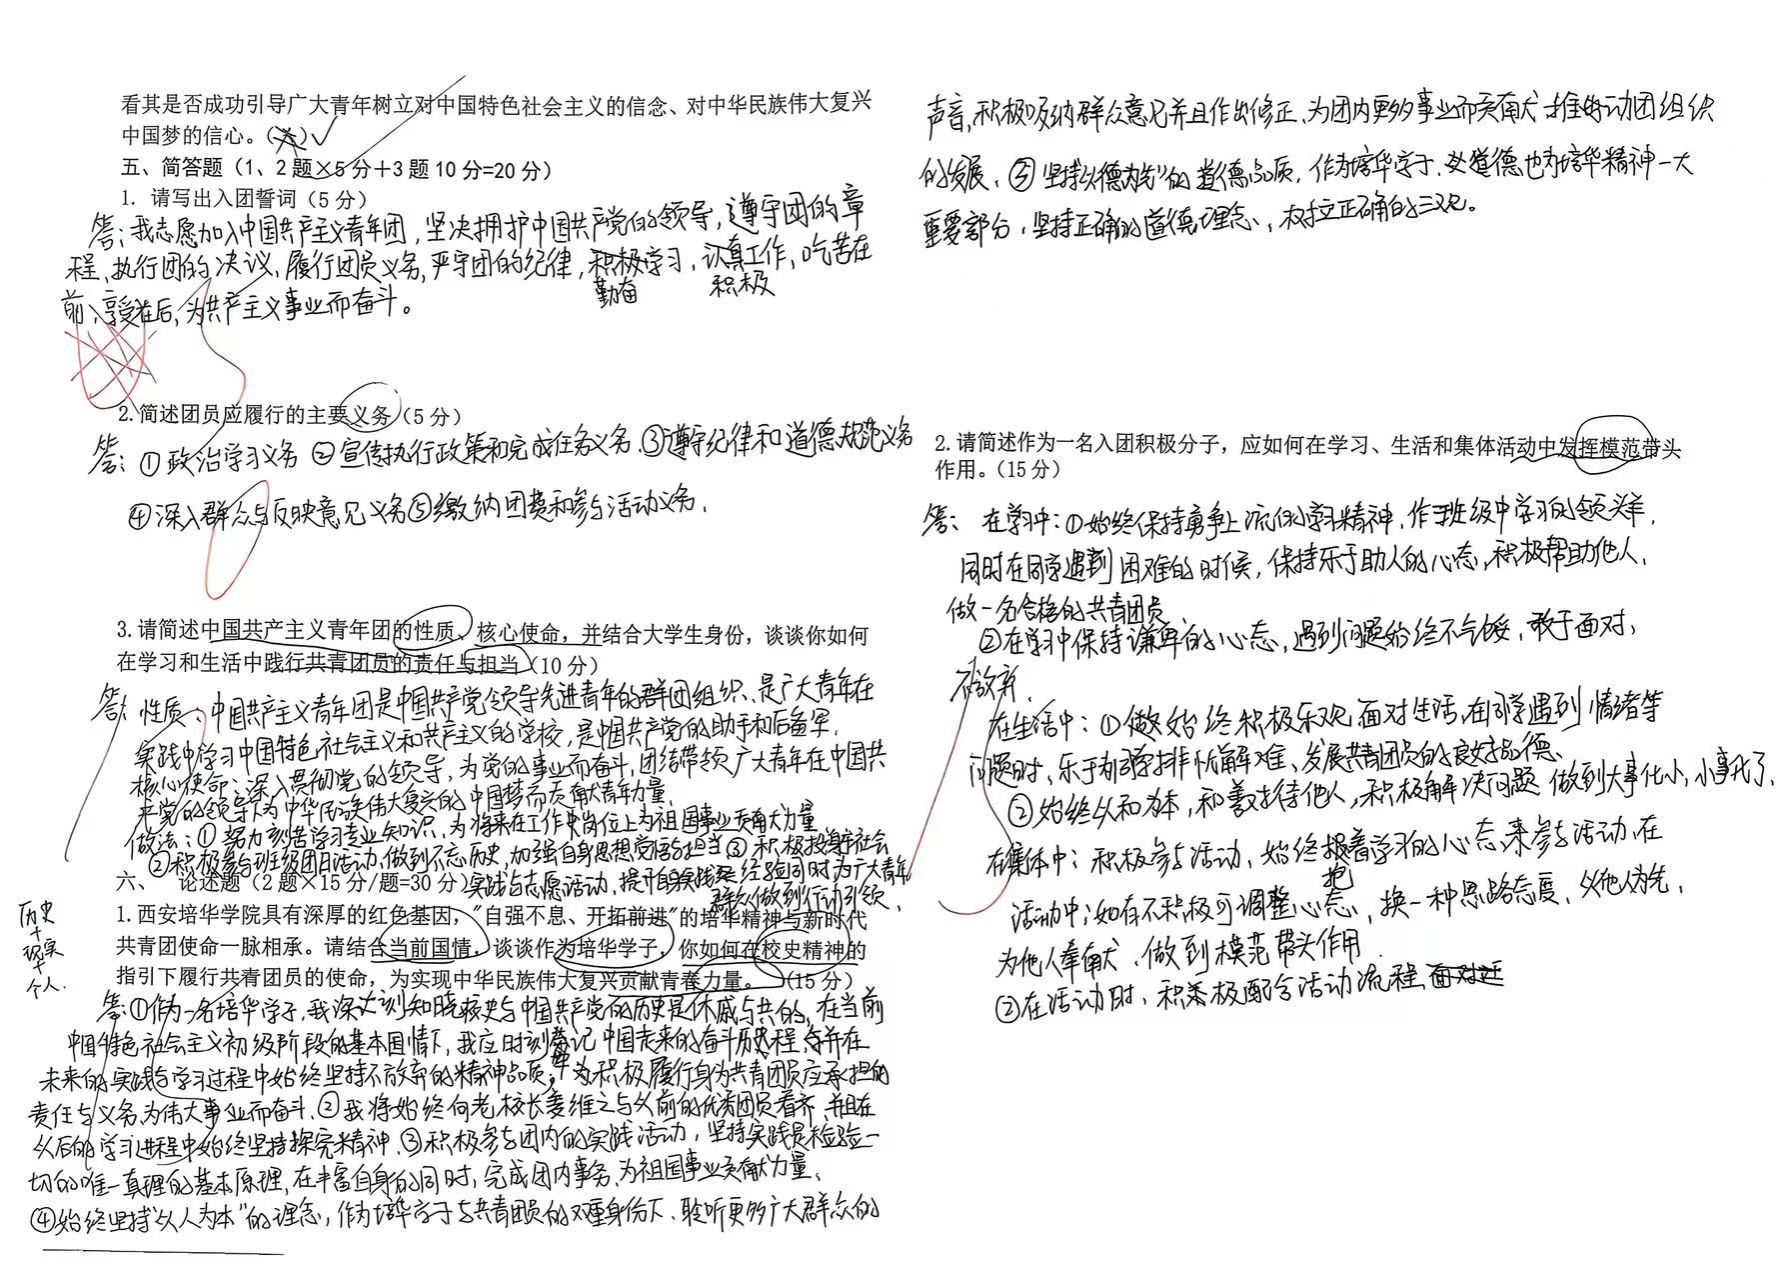 看其是否成功引导广大青年树立对中国特色社会主义的信念、对中华民族伟大复兴
中国梦的信心。( )✓
五、简答题（1、2题×5分＋3题10分=20分）
1. 请写出入团誓词（5分）
答：我志愿加入中国共产主义青年团，坚决拥护中国共产党的领导，遵守团的章
程，执行团的决议，履行团员义务，严守团的纪律，积极学习，认真工作，吃苦在
勤奋 积极
前，享受在后，为共产主义事业而奋斗。
2.简述团员应履行的主要义务（5分）
答：①政治学习义务 ②宣传执行政策和完成任务义务.③遵守纪律和道德规范义务
④深入群众与反映意见义务⑤缴纳团费和参与活动义务.
3.请简述中国共产主义青年团的性质、核心使命，并结合大学生身份，谈谈你如何
在学习和生活中践行共青团员的责任与担当（10分）
答：性质：中国共产主义青年团是中国共产党领导先进青年的群团组织、是广大青年在
实践中学习中国特色社会主义和共产主义的学校，是中国共产党的助手和后备军.
核心使命：深入贯彻党的领导，为党的事业而奋斗，团结带领广大青年在中国共
产党的领导下为中华民族伟大复兴的中国梦而贡献青年力量.
做法：①努力刻苦学习专业知识，为将来在工作中岗位上为祖国事业贡献力量
②积极参与班级团日活动，做到不忘历史，加强自身思想觉悟与担当③积极投身社会
实践与志愿活动，提升自身实践经验同时为广大青年
群众做到行动引领.
六、 论述题（2题×15分/题=30分）
1.西安培华学院具有深厚的红色基因，"自强不息、开拓前进"的培华精神与新时代
共青团使命一脉相承。请结合当前国情，谈谈作为培华学子，你如何在校史精神的
指引下履行共青团员的使命，为实现中华民族伟大复兴贡献青春力量。（15分）
历史
+
现实
+
个人.
答：①作为一名培华学子，我深刻知晓校史与中国共产党的历史是休戚与共的，在当前
中国特色社会主义初级阶段的基本国情下，我应时刻牢记中国走来的奋斗历程，并在
未来的实践与学习过程中始终坚持不放弃的精神品质，为积极履行身为共青团员应承担的
责任与义务，为伟大事业而奋斗.②我将始终向老校长姜维之与从前的优秀团员看齐，并且在
从后的学习进程中始终坚持探究精神.③积极参与团内的实践活动，坚持实践是检验一
切的唯一真理的基本原理，在丰富自身的同时，完成团内事务，为祖国事业贡献力量.
④始终坚持"以人为本"的理念，作为培华学子与共青团员的双重身份下，聆听更多广大群众的
声音，积极吸纳群众意见并且作出修正，为团内更多事业而贡献，推动团组织
的发展.⑤坚持"以德为先"的道德品质，作为培华学子，道德也为培华精神一大
重要部分，坚持正确的道德理念，树立正确的三观。
2.请简述作为一名入团积极分子，应如何在学习、生活和集体活动中发挥模范带头
作用。（15分）
答： 在学习中：①始终保持勇争上流的学习精神，作于班级中学习的领头羊，
同时在同学遇到困难的时候，保持乐于助人的心态，积极帮助他人，
做一名合格的共青团员.
②在学习中保持谦卑的心态，遇到问题始终不气馁，敢于面对，
不放弃.
在生活中：①做始终积极乐观面对生活，在同学遇到情绪等
问题时，乐于为同学排忧解难、发展共青团员的良好品德.
②始终以和为本，和善对待他人，积极解决问题 做到大事化小，小事化了.
在集体中：积极参与活动，始终抱着学习的心态，来参与活动，在
抱
活动中；如有不积极可调整心态，换一种思路态度，以他人为先，
为他人奉献，做到模范带头作用.
②在活动时，积极配合活动流程，